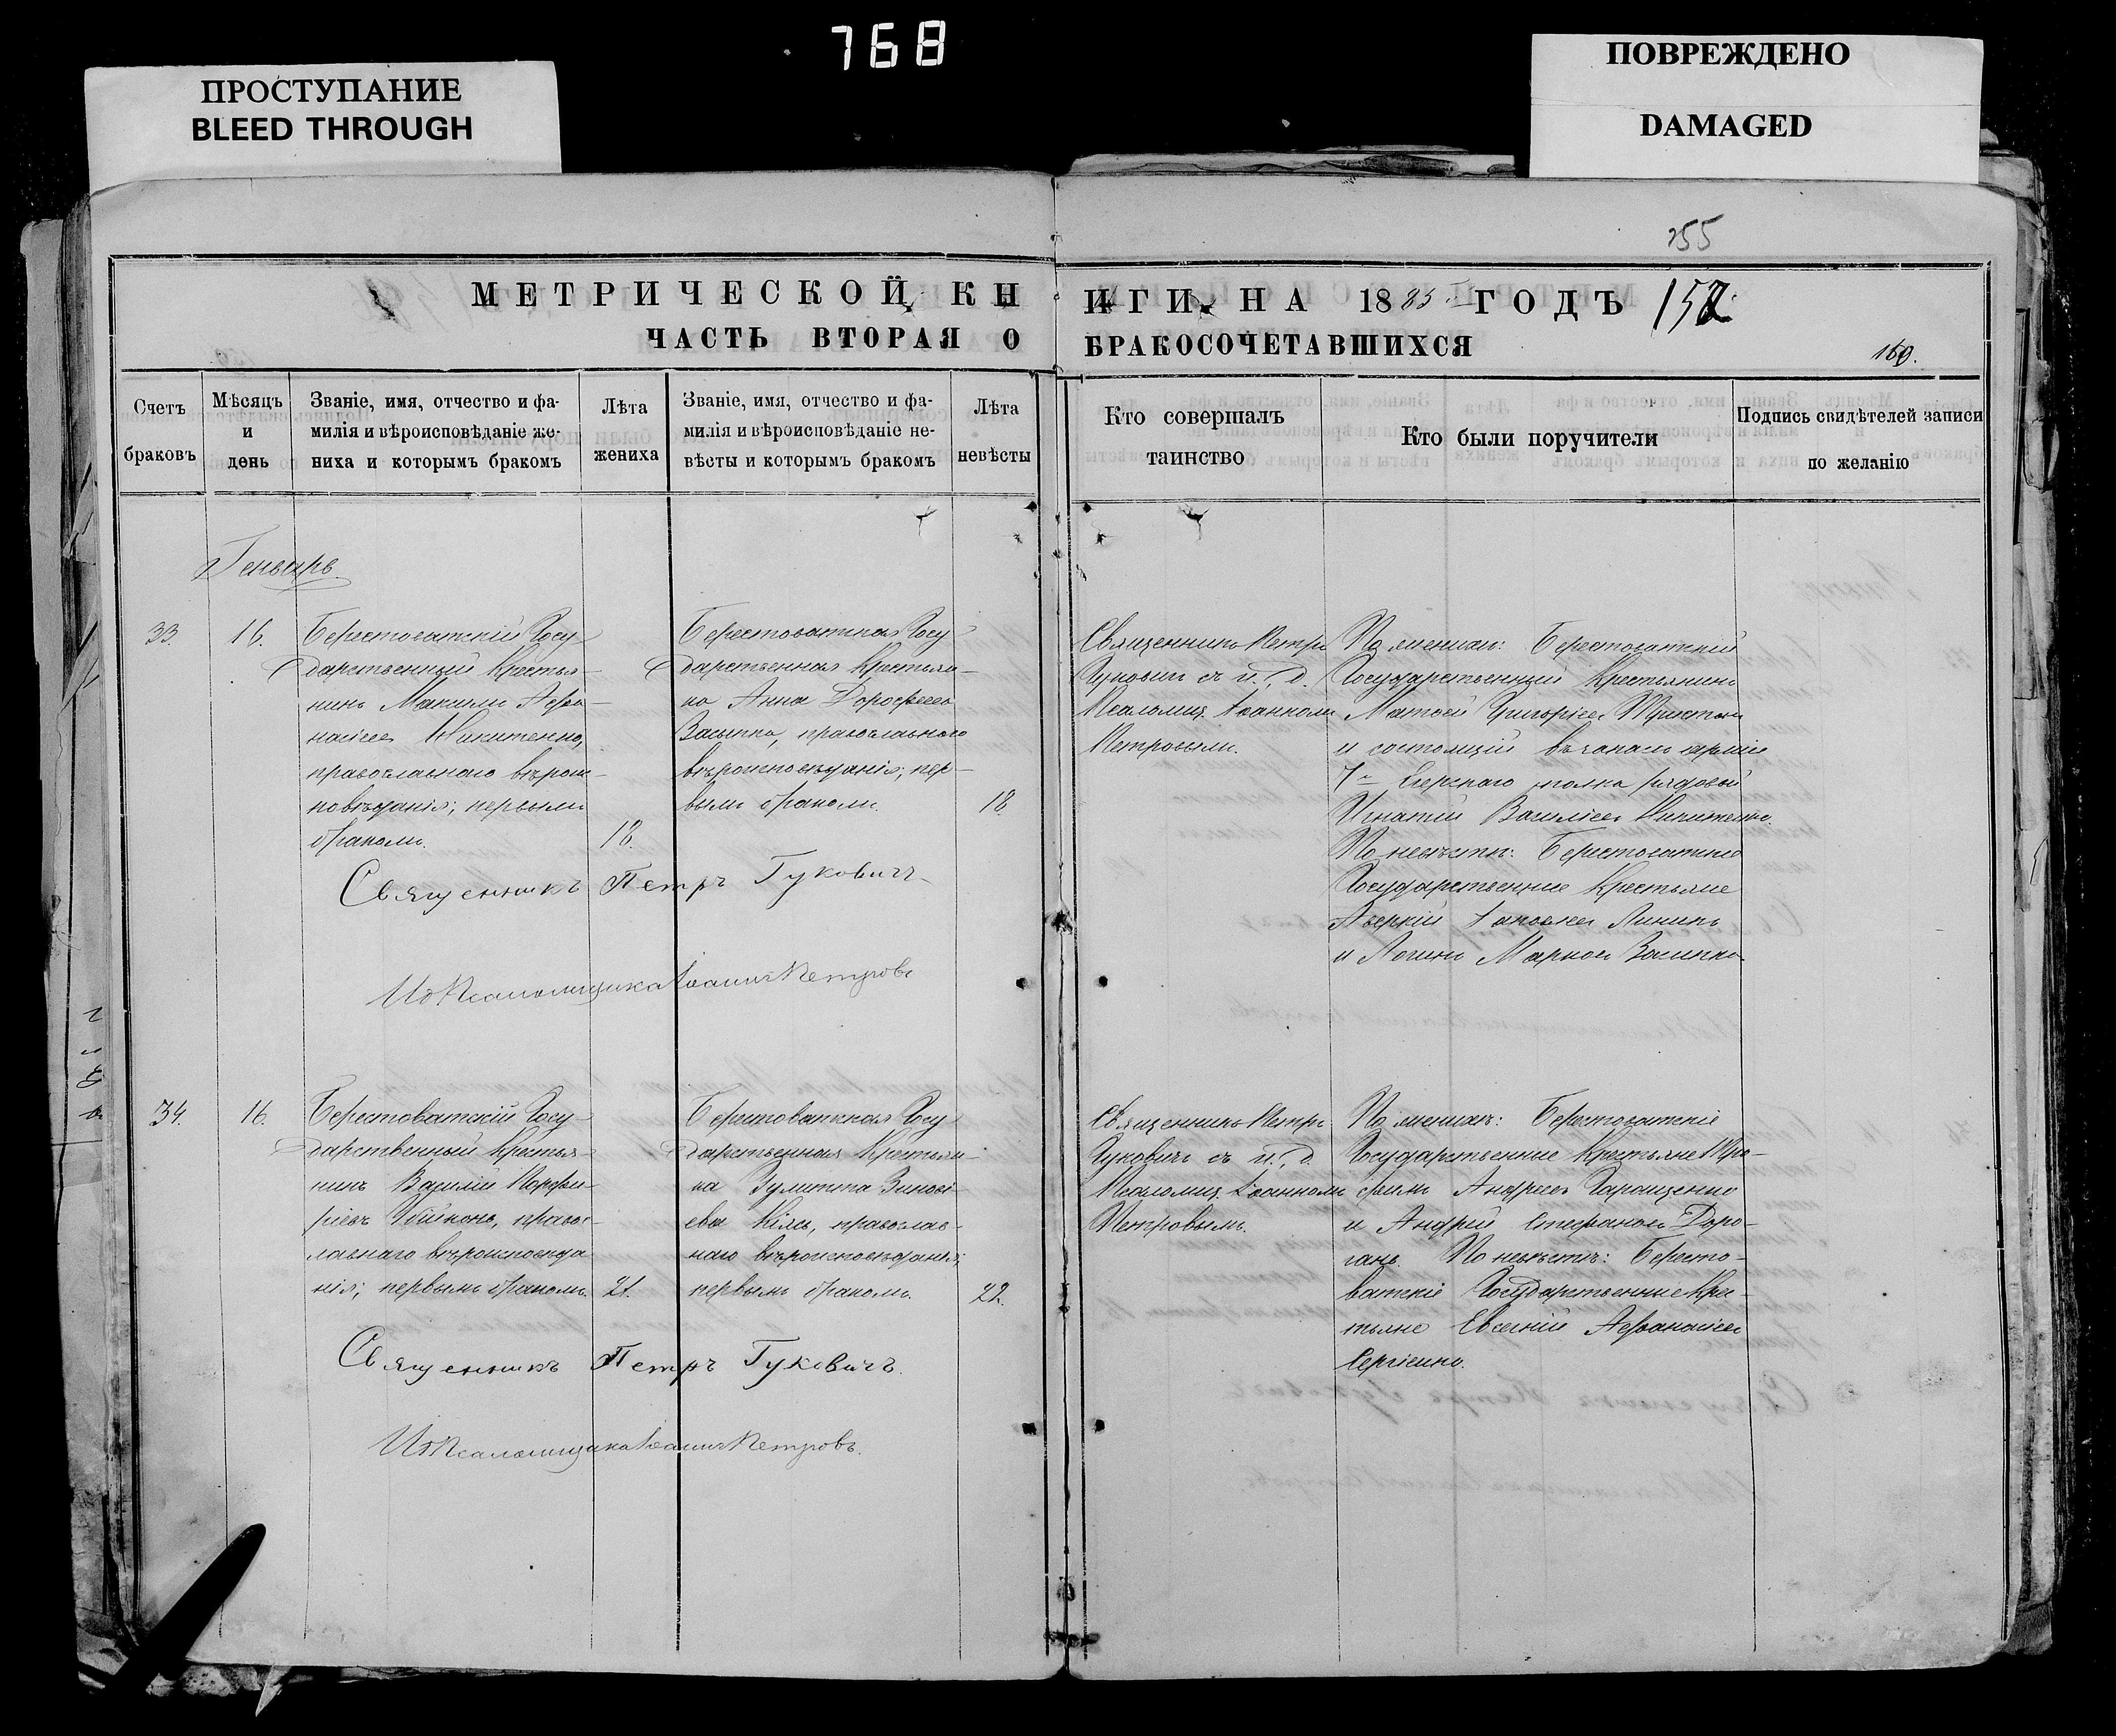 768
ПРОСТУПАНИЕ
BLEED THROUGH
ПОВРЕЖДЕНО
DAMAGED
255
МЕТРИЧЕСКОЙ КНИГИ НА 1885 ГОДЪ 152
ЧАСТЬ ВТОРАЯ О БРАКОСОЧЕТАВШИХСЯ
160.
Счетъ браковъ
Мѣсяцъ и день
Званіе, имя, отчество и фа-
милія и вѣроисповѣданіе же-
ниха и которымъ бракомъ
Лѣта жениха
Званіе, имя, отчество и фа-
милія и вѣроисповѣданіе не-
вѣсты и которымъ бракомъ
Лѣта невѣсты
Кто совершалъ
таинство
Кто были поручители
Подпись свидѣтелей записи
по желанію
Генварь.
33.
16.
Берестоватскій Госу-
дарственный Крестья-
нинъ Максимъ Афа-
насіевъ Никитенко,
православнаго вѣроис-
повѣданія; первымъ
бракомъ.
18.
Берестоватская Госу-
дарственная Крестьян-
ка Анна Дорофеева
Засыпка, православнаго
вѣроисповѣданія; пер-
вымъ бракомъ.
18.
Священникъ Петръ
Гуковичъ съ и. д.
Псаломщ. Іоанномъ
Петровымъ.
По женихѣ: Берестоватскій
Государственный Крестьянинъ
Матвей Григоріевъ
и состоящій въ запасѣ арміи
7го полка рядовой
Игнатій Василіевъ Никитенко.
По невѣстѣ: Берестоватскіе
Государственные Крестьяне
Аверкій
и Логинъ Марковъ Засыпка
Священникъ Петръ Гуковичъ
ИД Псаломщика Іоаннъ Петровъ
34.
16.
Берестоватскій Госу-
дарственный Крестья-
нинъ Василій Порфи-
ріевъ православ-
лавнаго вѣроисповѣда-
нія; первымъ бракомъ.
21.
Берестоватская Госу-
дарственная Крестьян-
ка Зинові-
ева православ-
наго вѣроисповѣданія;
первымъ бракомъ.
22.
Священникъ Петръ
Гуковичъ съ и. д.
Псаломщ. Іоанномъ
Петровымъ.
По женихѣ: Берестоватскіе
Государственные Крестьяне Тро-
фимъ Андреевъ Гаращенко
и Андрей Стефановъ Доро-
ганъ. По невѣстѣ: Бересто-
ватскіе Государственные Крес-
тьяне Евсевій Афанасіевъ
Сергіенко.
Священникъ Петръ Гуковичъ.
ИД Псаломщика Іоаннъ Петровъ.